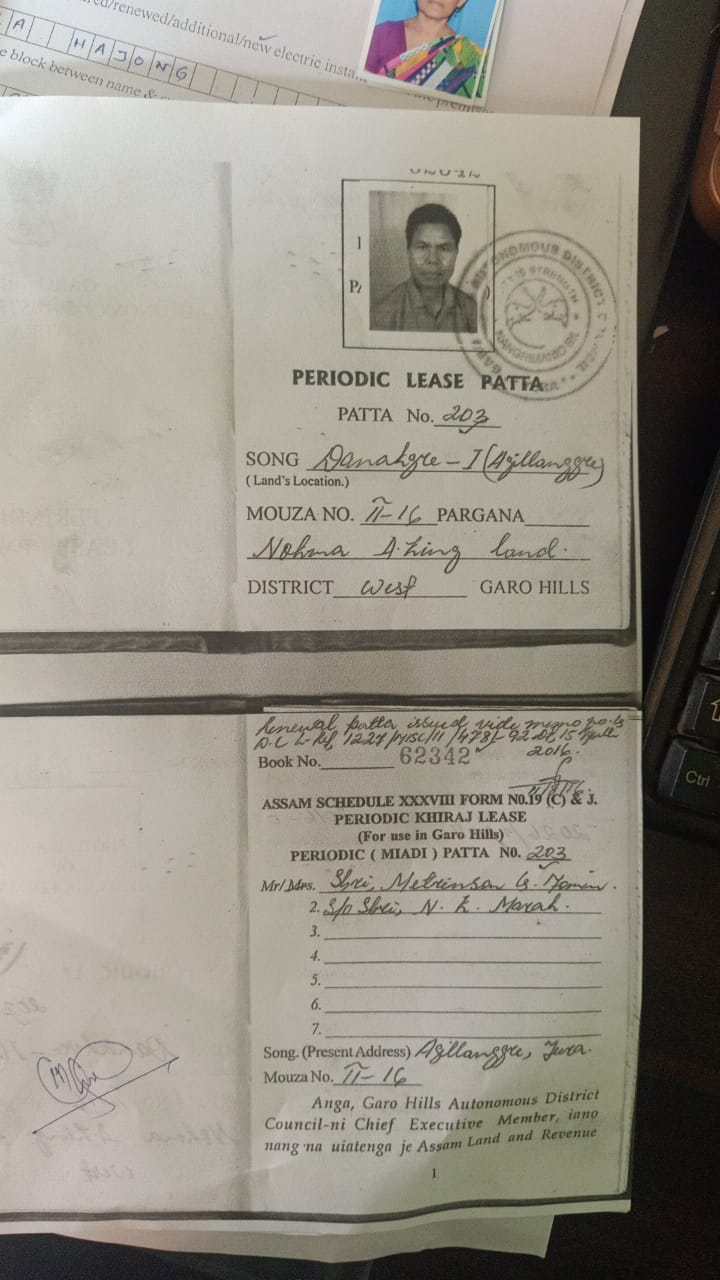 /renewed/additional/new electric insta
A HAJONG
block between name &
PERIODIC LEASE PATTA
PATTA No. 203
SONG Danakgre - I (Agillanggre)
(Land's Location.)
MOUZA NO. II-16 PARGANA
Nokma A.king land.
DISTRICT West GARO HILLS
AUTONOMOUS DISTRICT
STRENGTH
Renewal patta issued vide memo
1227 15
2016.
Book No. 62342
ASSAM SCHEDULE XXXVIII FORM N0.19 (C) & J.
PERIODIC KHIRAJ LEASE
(For use in Garo Hills)
PERIODIC ( MIADI ) PATTA N0. 203
Mr/Mrs. Shri, Metrinson G. Momin.
2. S/o Shri, N. K. Marak.
3.
4.
5.
6.
7.
Song. (Present Address) Agillanggre, Tura.
Mouza No. II-16
Anga, Garo Hills Autonomous District
Council-ni Chief Executive Member, iano
nang·na uiatenga je Assam Land and Revenue
1
Ctrl